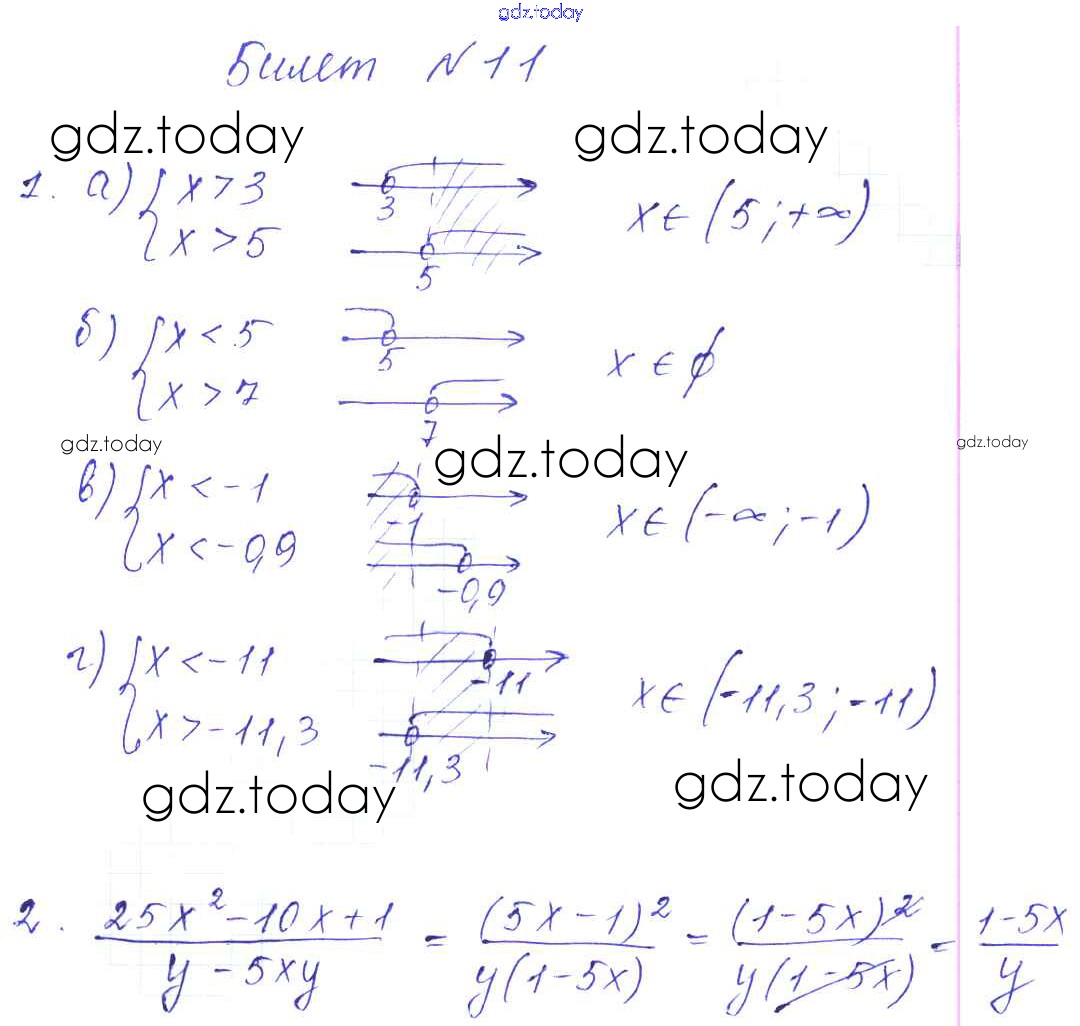 gdz.today
Билет №11
gdz.today gdz.today
1. а) { x > 3 3 x ∈ (5; +∞)
{ x > 5 5
б) { x < 5 5 x ∈ ∅
{ x > 7 7
gdz.today gdz.today gdz.today
в) { x < -1 -1 x ∈ (-∞; -1)
{ x < -0,9 -0,9
г) { x < -11 -11 x ∈ (-11,3; -11)
{ x > -11,3 -11,3
gdz.today gdz.today
2. (25x² - 10x + 1)/(y - 5xy) = (5x - 1)²/(y(1 - 5x)) = (1 - 5x)²/(y(1 - 5x)) = (1 - 5x)/y